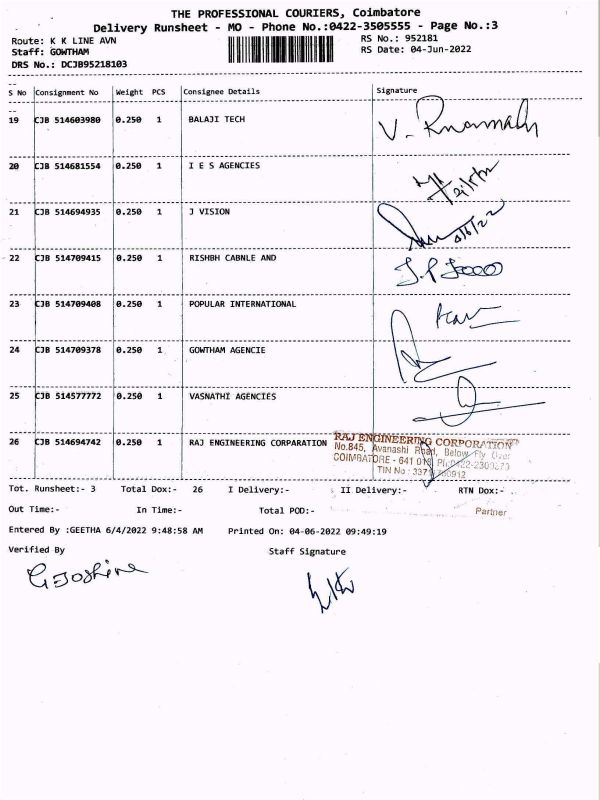 THE PROFESSIONAL COURIERS, Coimbatore
Delivery Runsheet - MO - Phone No.:0422-3505555 - Page No.:3
Route: K K LINE AVN RS No.: 952181
Staff: GOWTHAM RS Date: 04-Jun-2022
DRS No.: DCJB95218103
S No Consignment No Weight PCS Consignee Details Signature
19 CJB 514603980 0.250 1 BALAJI TECH
20 CJB 514681554 0.250 1 I E S AGENCIES
21 CJB 514694935 0.250 1 J VISION
22 CJB 514709415 0.250 1 RISHBH CABNLE AND
23 CJB 514709408 0.250 1 POPULAR INTERNATIONAL
24 CJB 514709378 0.250 1 GOWTHAM AGENCIE
25 CJB 514577772 0.250 1 VASNATHI AGENCIES
26 CJB 514694742 0.250 1 RAJ ENGINEERING CORPARATION
RAJ ENGINEERING CORPORATION
No.845, Avanashi Road, Below Fly Over
COIMBATORE - 641 018
TIN No
Partner
Tot. Runsheet:- 3 Total Dox:- 26 I Delivery:- II Delivery:- RTN Dox:-
Out Time:- In Time:- Total POD:-
Entered By :GEETHA 6/4/2022 9:48:58 AM Printed On: 04-06-2022 09:49:19
Verified By Staff Signature